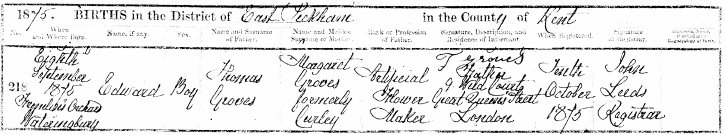 1875. BIRTHS in the District of East Peckham in the County of Kent
No. When and Where Born. Name, if any. Sex. Name and Surname of Father. Name and Maiden Surname of Mother. Rank or Profession of Father. Signature, Description, and Residence of Informant. When Registered. Signature of Registrar.
218 Eighth September 1875 Orchard Wateringbury
Edward
Boy
Thomas Groves
Margaret Groves formerly Curley
Artificial Flower Maker
T Groves Father 9 Wild Court Great Queen Street London
Tenth October 1875
John Leeds Registrar